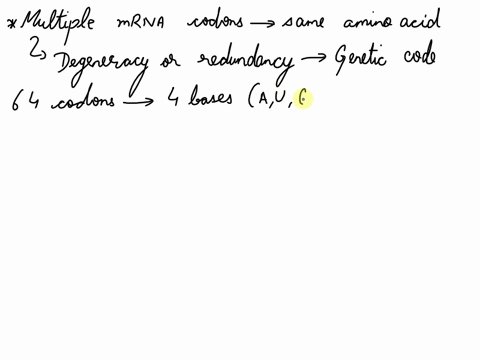 * Multiple mRNA codons → same amino acid
↳ Degeneracy or redundancy → Genetic code
64 codons → 4 bases (A, U, G